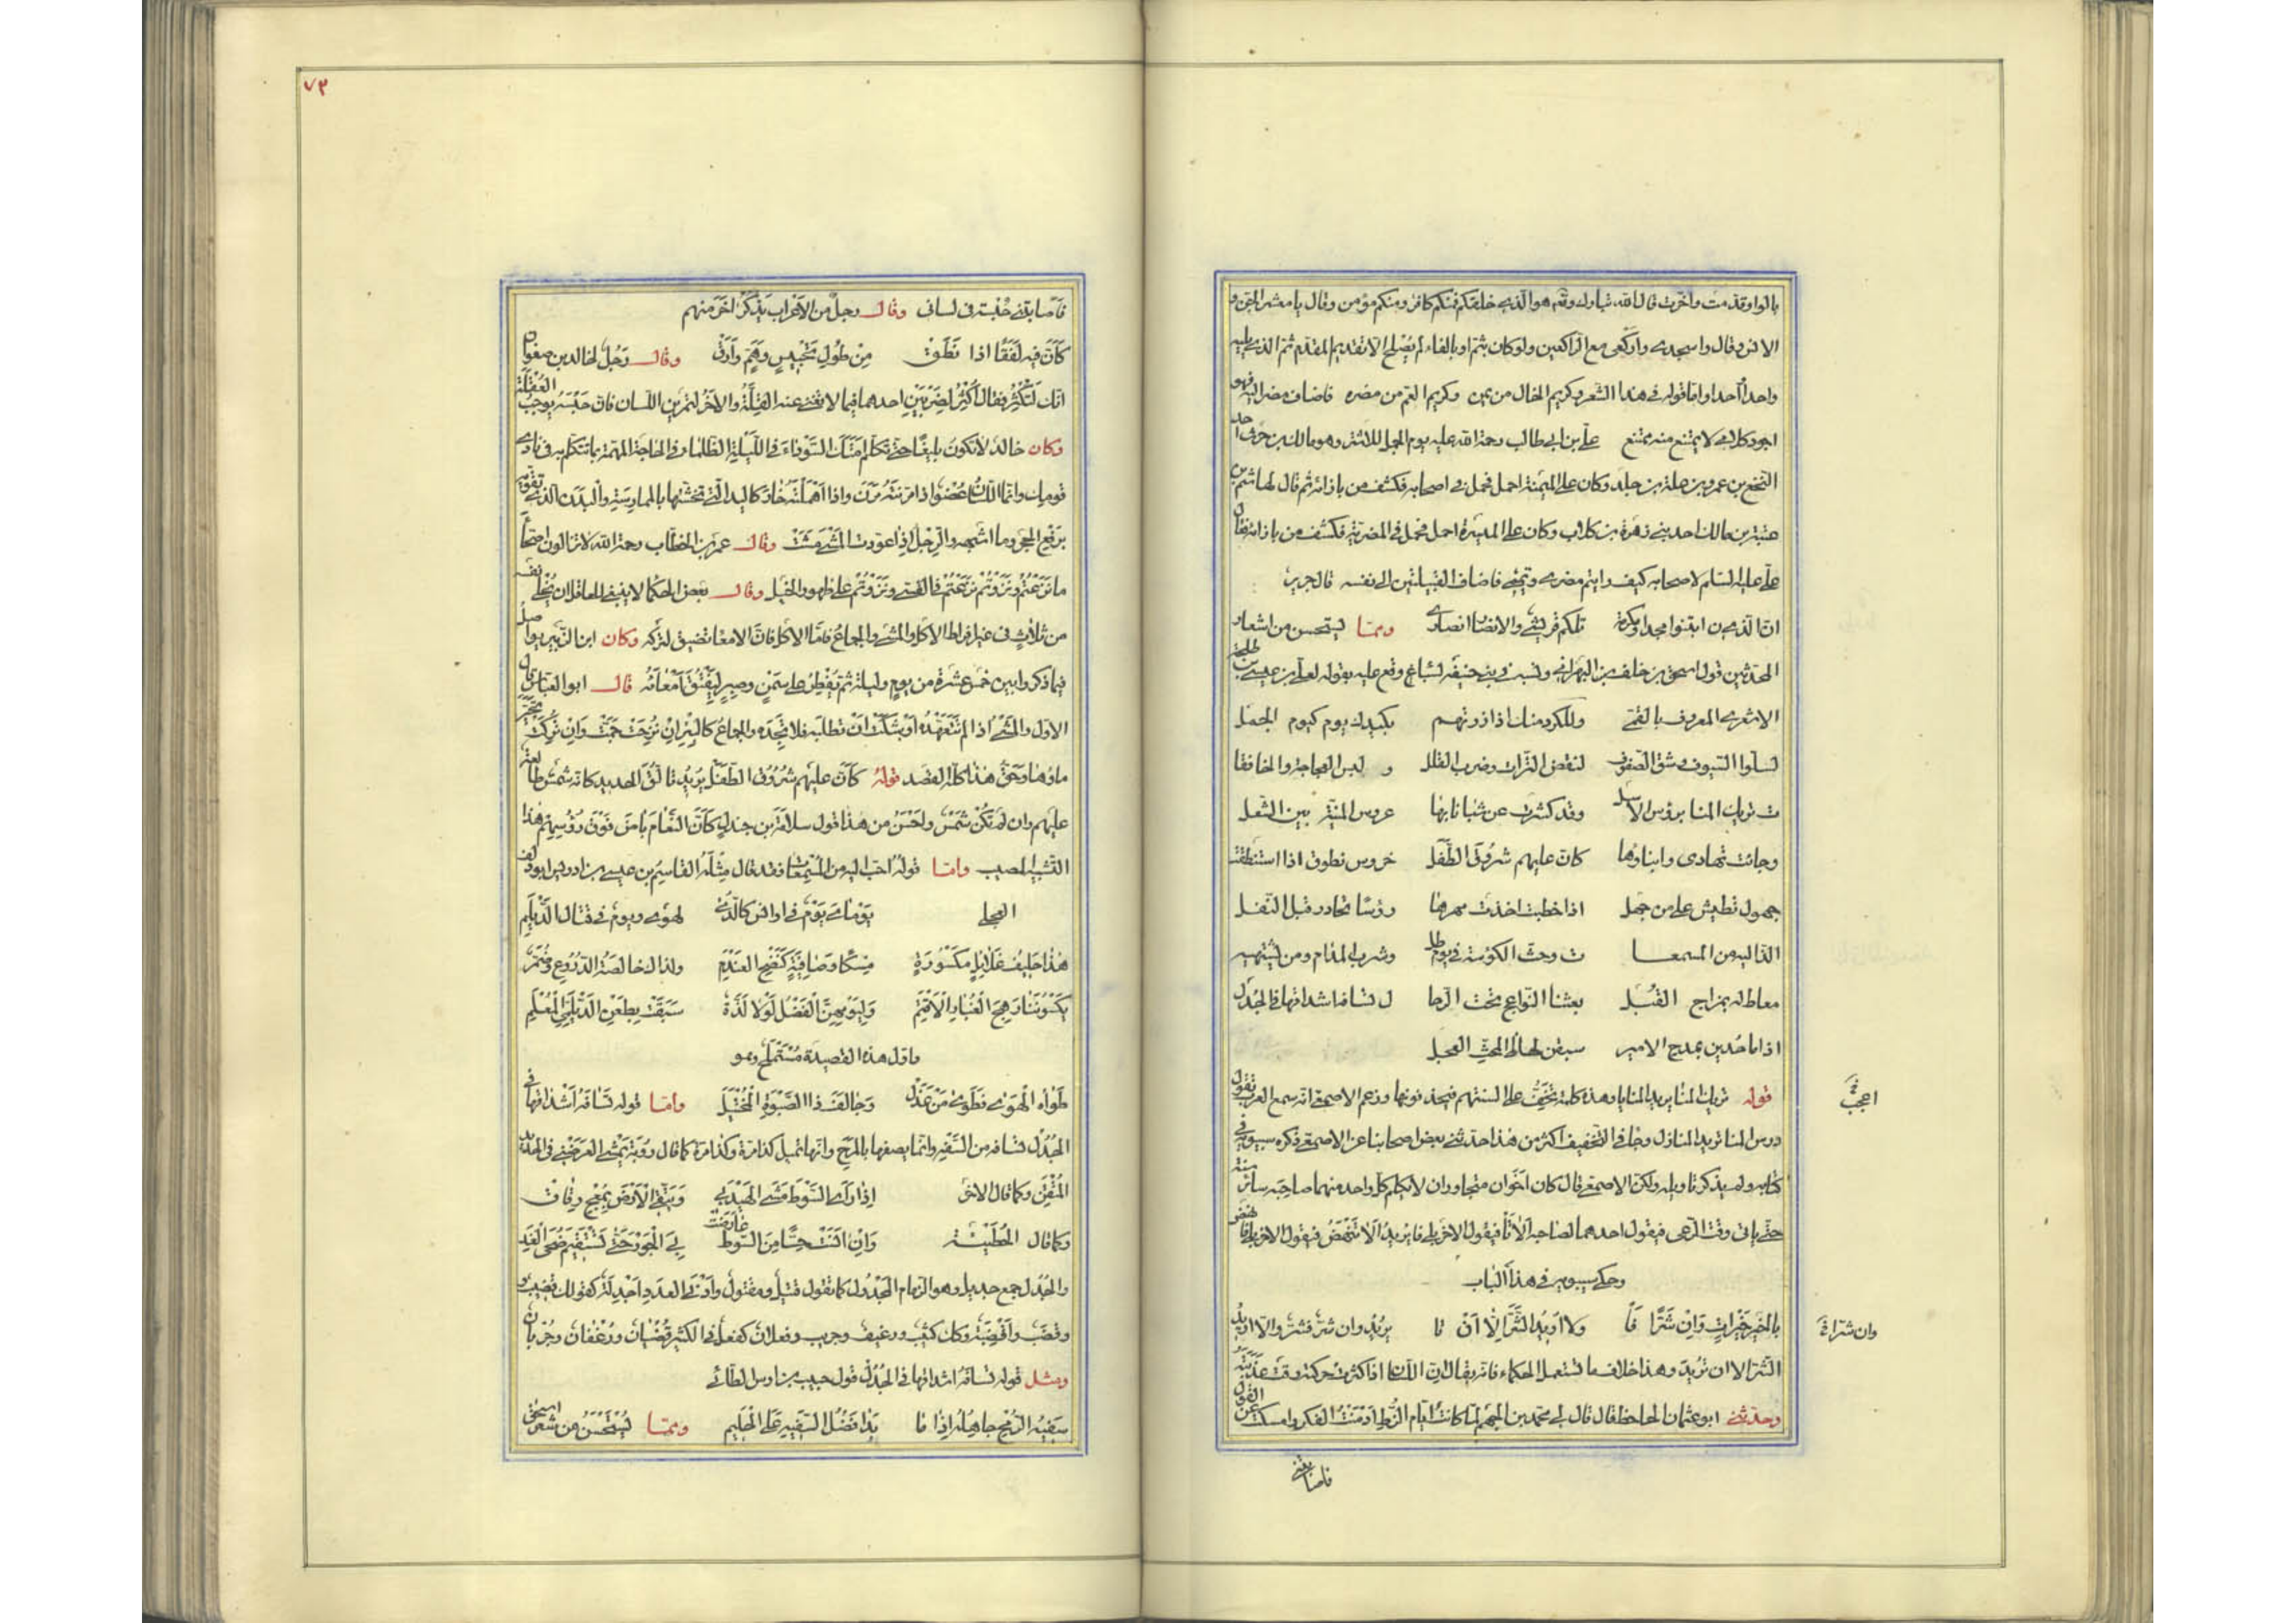 بالواو قدمت واخرت قال الله تبارك وتعم هو الذى خلقكم فمنكم كافر ومنكم مؤمن وقال يا معشر الجن و
الانس وقال واسجدى واركعى مع الراكعين ولو كان بثم او بالفاء لم يصلح الا تقديم المقدم ثم الذى يليه
واحدا واحدا واما قوله فى هذا الشعر وكريم الخال من يمن وكريم العم من مضره فاضاف مضر اليه فهو
اجود كلام لا يمتنع منه ممتنع على بن ابى طالب رحمة الله عليه يوم الجمل للاشتر وهو مالك بن حرث احد
النخع بن عمرو بن علة بن جلد وكان على الميمنة احمل فحمل فى اصحابه فكشف من بازائه ثم قال لهاشم بن
عتبة بن مالك احد بنى زهرة بن كلاب وكان على الميسرة احمل فحمل فى المضرية فكشف من بازائه فقال
على عليه السلام لاصحابه كيف رايتم مضرى ويمنى فاضاف القبيلتين الى نفسه قال جرير
ان الذين ابتنوا مجدا ومكرمة تلكم قريشى والانصار انصارى ومما يستحسن من اشعار
المحدثين قول اسحق بن خلف بن البهرانى ونسبه فى بنى حنيفه لسباء وقع عليه يقوله لعلى بن عيسى بن طلحة
الاشعرى المعروف بالقمى وللكرد منك اذا زرتهم بكيدك يوم كيوم الجمل
لسلوا السيوف بشق الصفوف لنقض الترات وضرب القلل و لبس العجاجة والخافقا
ت تريك المنا برؤس الاسل وقد كشرت عن شبا نابها عروس المنية بين الشعل
وجائت تهادى وابناؤها كان عليهم شروق الطفل خروس نطوق اذا استنطقت
جهول تطيش على من جهل اذا خطبت اخذت مهرها رؤسا تحادر قبل النفل
الذ اليه من المسمعا ت وحث الكؤس فى يوم طل وشرب المدام ومن يشتهيه
معاط له بمزاج القبل بعثنا النواعج تحت الرحا ل تسافه اشداقها فى الجدل
اذا ما حدين بمدح الامير سبقن لحاظ المحث العجل
قوله تريك المنا يريد المنايا وهذه كلمة تخف على السنتهم فيحذفونها وزعم الاصمعى انه سمع العرب تقول
درس المنا تريد المنازل وجا فى التخفيف اعجب من هذا حدثنى بعض اصحابنا عن الاصمعى ذكره سيبويه فى
كتابه ولم يذكر تاويله ولكن الاصمعى قال كان اخوان متجاوران لا يكلم كل واحد منهما صاحبه سائر سنته
حتى ياتى وقت الرعى فيقول احدهما لصاحبه الاتا فيقول الاخر بلى فا يريد الا تنهض فيقول الاخر بلى فانهض
وحكى سيبويه فى هذا الباب
بالخير خيرات وان شرا فا ولا اريد الشر الا ان تا يريد وان شر فشر والا اريد
الشر الا ان تريد وهذا خلاف ما تستعمل الحكماء فانه يقال ان اللسان اذا كثرت حركته رقت عذبته
وحدثنى ابو عثمان الجاحظ قال قال لى محمد بن الجهم لما كانت ايام الزط ادمنت الفكر وامسكت عن القول
اعجب
وان شرا فا
فاصابتنى
٧٣
فاصابتنى حبسة فى لسانى وقال رجل من الاعراب يذكر اخر منهم
كان فيه لففا اذا نطق من طول تحبيس وهم وارق وقال رجل لخالد بن صفوان
انك لتكثر فقال اكثر لضربين احدهما فيما لا تغنى عنه القلة والاخر لتمرين اللسان فان حبسه يوجب العقلة
وكان خالد لا تكون بليغا حتى تكلم امتك السوداء فى الليلة الظلماء فى الحاجة المهمة بما تتكلم به فى نادى
قومك وانما اللسان عضو اذا مرنته مرن واذا اهملته خار كاليد التى تخشنها بالممارسة والبدن الذى تقويه
برفع الحجر وما اشبهه والرجل اذا عودت المشى مشت وقال عمر بن الخطاب رحمة الله لا تزالون اصحاء
ما نزعتم ونزوتم نزعتم فى القسى ونزوتم على ظهور الخيل وقال بعض الحكما لا ينبغى للعاقل ان يخلى نفسه
من ثلاث فى غير افراط الاكل والمشى والجماع فاما الاكل فان الامعا تضيق لتركه وكان ابن الزبير يواصل
فيما ذكروا بين خمس عشرة من يوم وليلة ثم يفطر على سمن وصبر ليفتق امعائه قال ابو العباس قال
الاول والمشى اذا لم تتعهده اوشكت ان تطلبه فلا تجده والجماع كالبئر ان نزحت جمت وان تركت تحير
ماؤها وحق هذا كله القصد قوله كان عليهم شروق الطفل يريد تالق الحديد كانه شمس طالعة
عليهم وان لم تكن شمس واحسن من هذا قول سلامة بن جندل كان النعام باض فوق رؤسهم هذا
التشبيه المصيب واما قوله احب اليه من المسمعات فقد قال مثله القاسم بن عيسى بن ادريس ابو دلف
العجلى يوماى يوم فى اوانس كالدمى لهوى ويوم فى قتال الديلم
هذا حليف غلائل مكسورة مسكا وصافية كنضح العندم ولذاك خالصة الدروع وضمر
يكسوننا رهج الغبار الاقتم وليومهن الفضل لولا لذة سبقت بطعن الديلمى المعلم
واول هذه القصيدة مستملح وهو
طواه الهوى فطوى من عذل وحالف ذا الصبوة المختبل واما قوله تسافه اشداقها فى
الجدل تسافه من السفه وانما يصفها بالمرح وانها تميل كذا مرة وكذا مرة كما قال رؤبة يمشى العرضنى فى الحديد
المتقن وكما قال الاخر اذا راى السوط مشى الهيدبى ويتقى الارض بمعج رقاق
وكما قال الحطيئة وان انست حسا من السوط عارضت بى الجور حتى تستقيم ضحى الغد
والجدل جمع جديل وهو الزمام المجدول كما تقول قتيل ومقتول وادنى العدد اجدلة كقولك قضيب و
وقضب واقضبة وكك كثيب ورغيف وجريب وفعلان كفعل فى الكثير قضبان ورغفان وجربان
ومثل قوله تسافه اشداقها فى الجدل قول حبيب بن اوس الطائى
سفيه الرمح جاهله اذا ما بدا فضل السفيه على الحليم ومما يستحسن من شعر اسحق